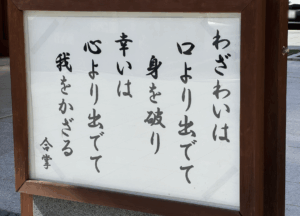 わざわいは
口より出でて
身を破り
幸いは
心より出でて
我をかざる
合掌